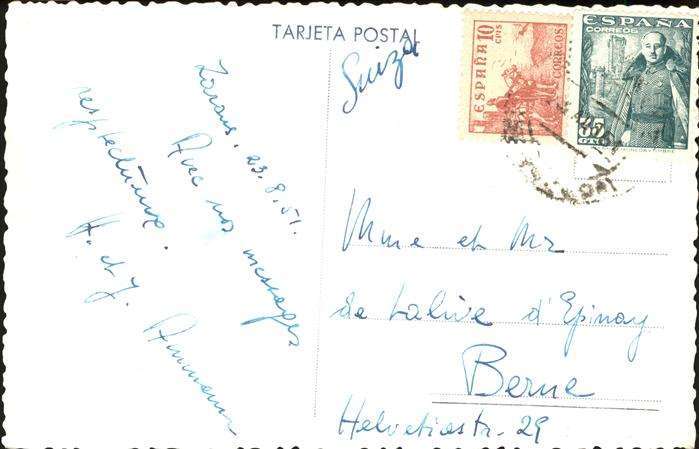 TARJETA POSTAL
Suiza
ESPAÑA 10 CTS
CORREOS
ESPAÑA
CORREOS
CTS
Zaraus. 23.8.51.
Avec nos messages
respectueux.
H. et J. Ammann
Mme et Mr
de Lalive d'Epinay
Berne
Helvetiastr. 29